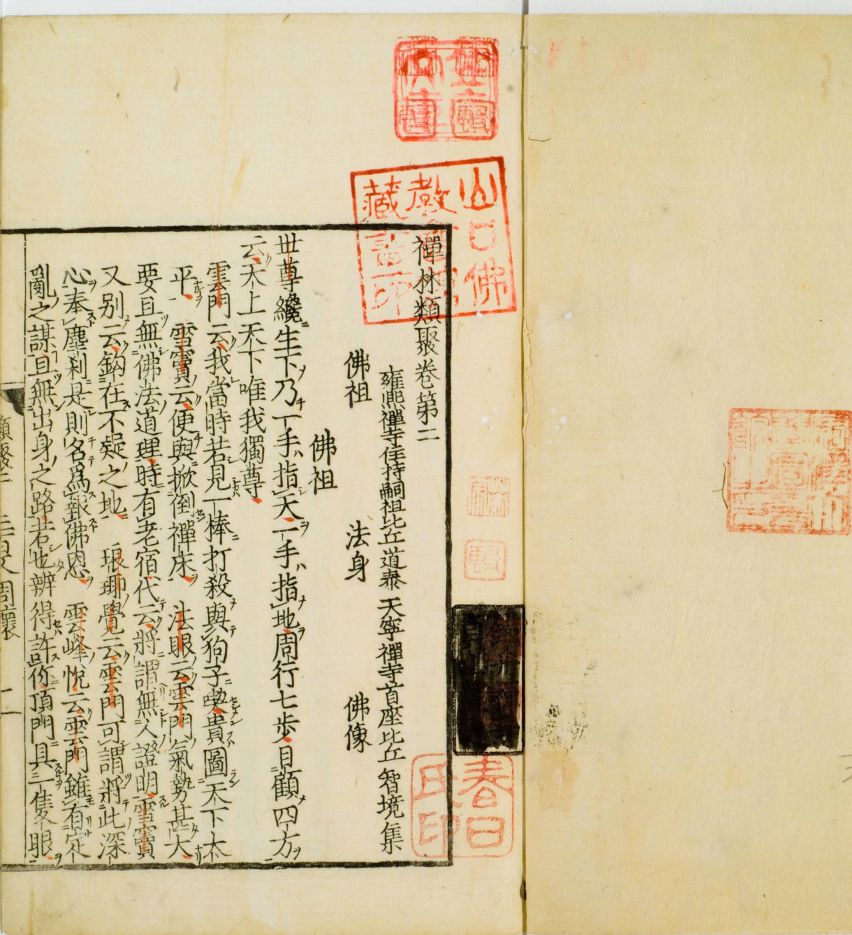 禪林類聚卷第二
雍熙禪寺住持嗣祖比丘道泰 天寧禪寺首座比丘 智境集
佛祖 法身 佛像
佛祖
世尊纔生下乃一手指天一手指地周行七步目顧四方
云天上天下唯我獨尊
雲門云我當時若見一棒打殺與狗子喫貴圖天下太
平 雪竇云便與掀倒禪床 法眼云雲門氣勢甚大
要且無佛法道理時有老宿代云將謂無人證明雪竇
又別云鈎在不疑之地 琅瑘覺云雲門可謂將此深
心奉塵刹是則名爲報佛恩 雲峰悅云雲門雖有定
亂之謀且無出身之路若也辨得許你頂門具一隻眼
山口佛
教
藏書印
春日
氏印